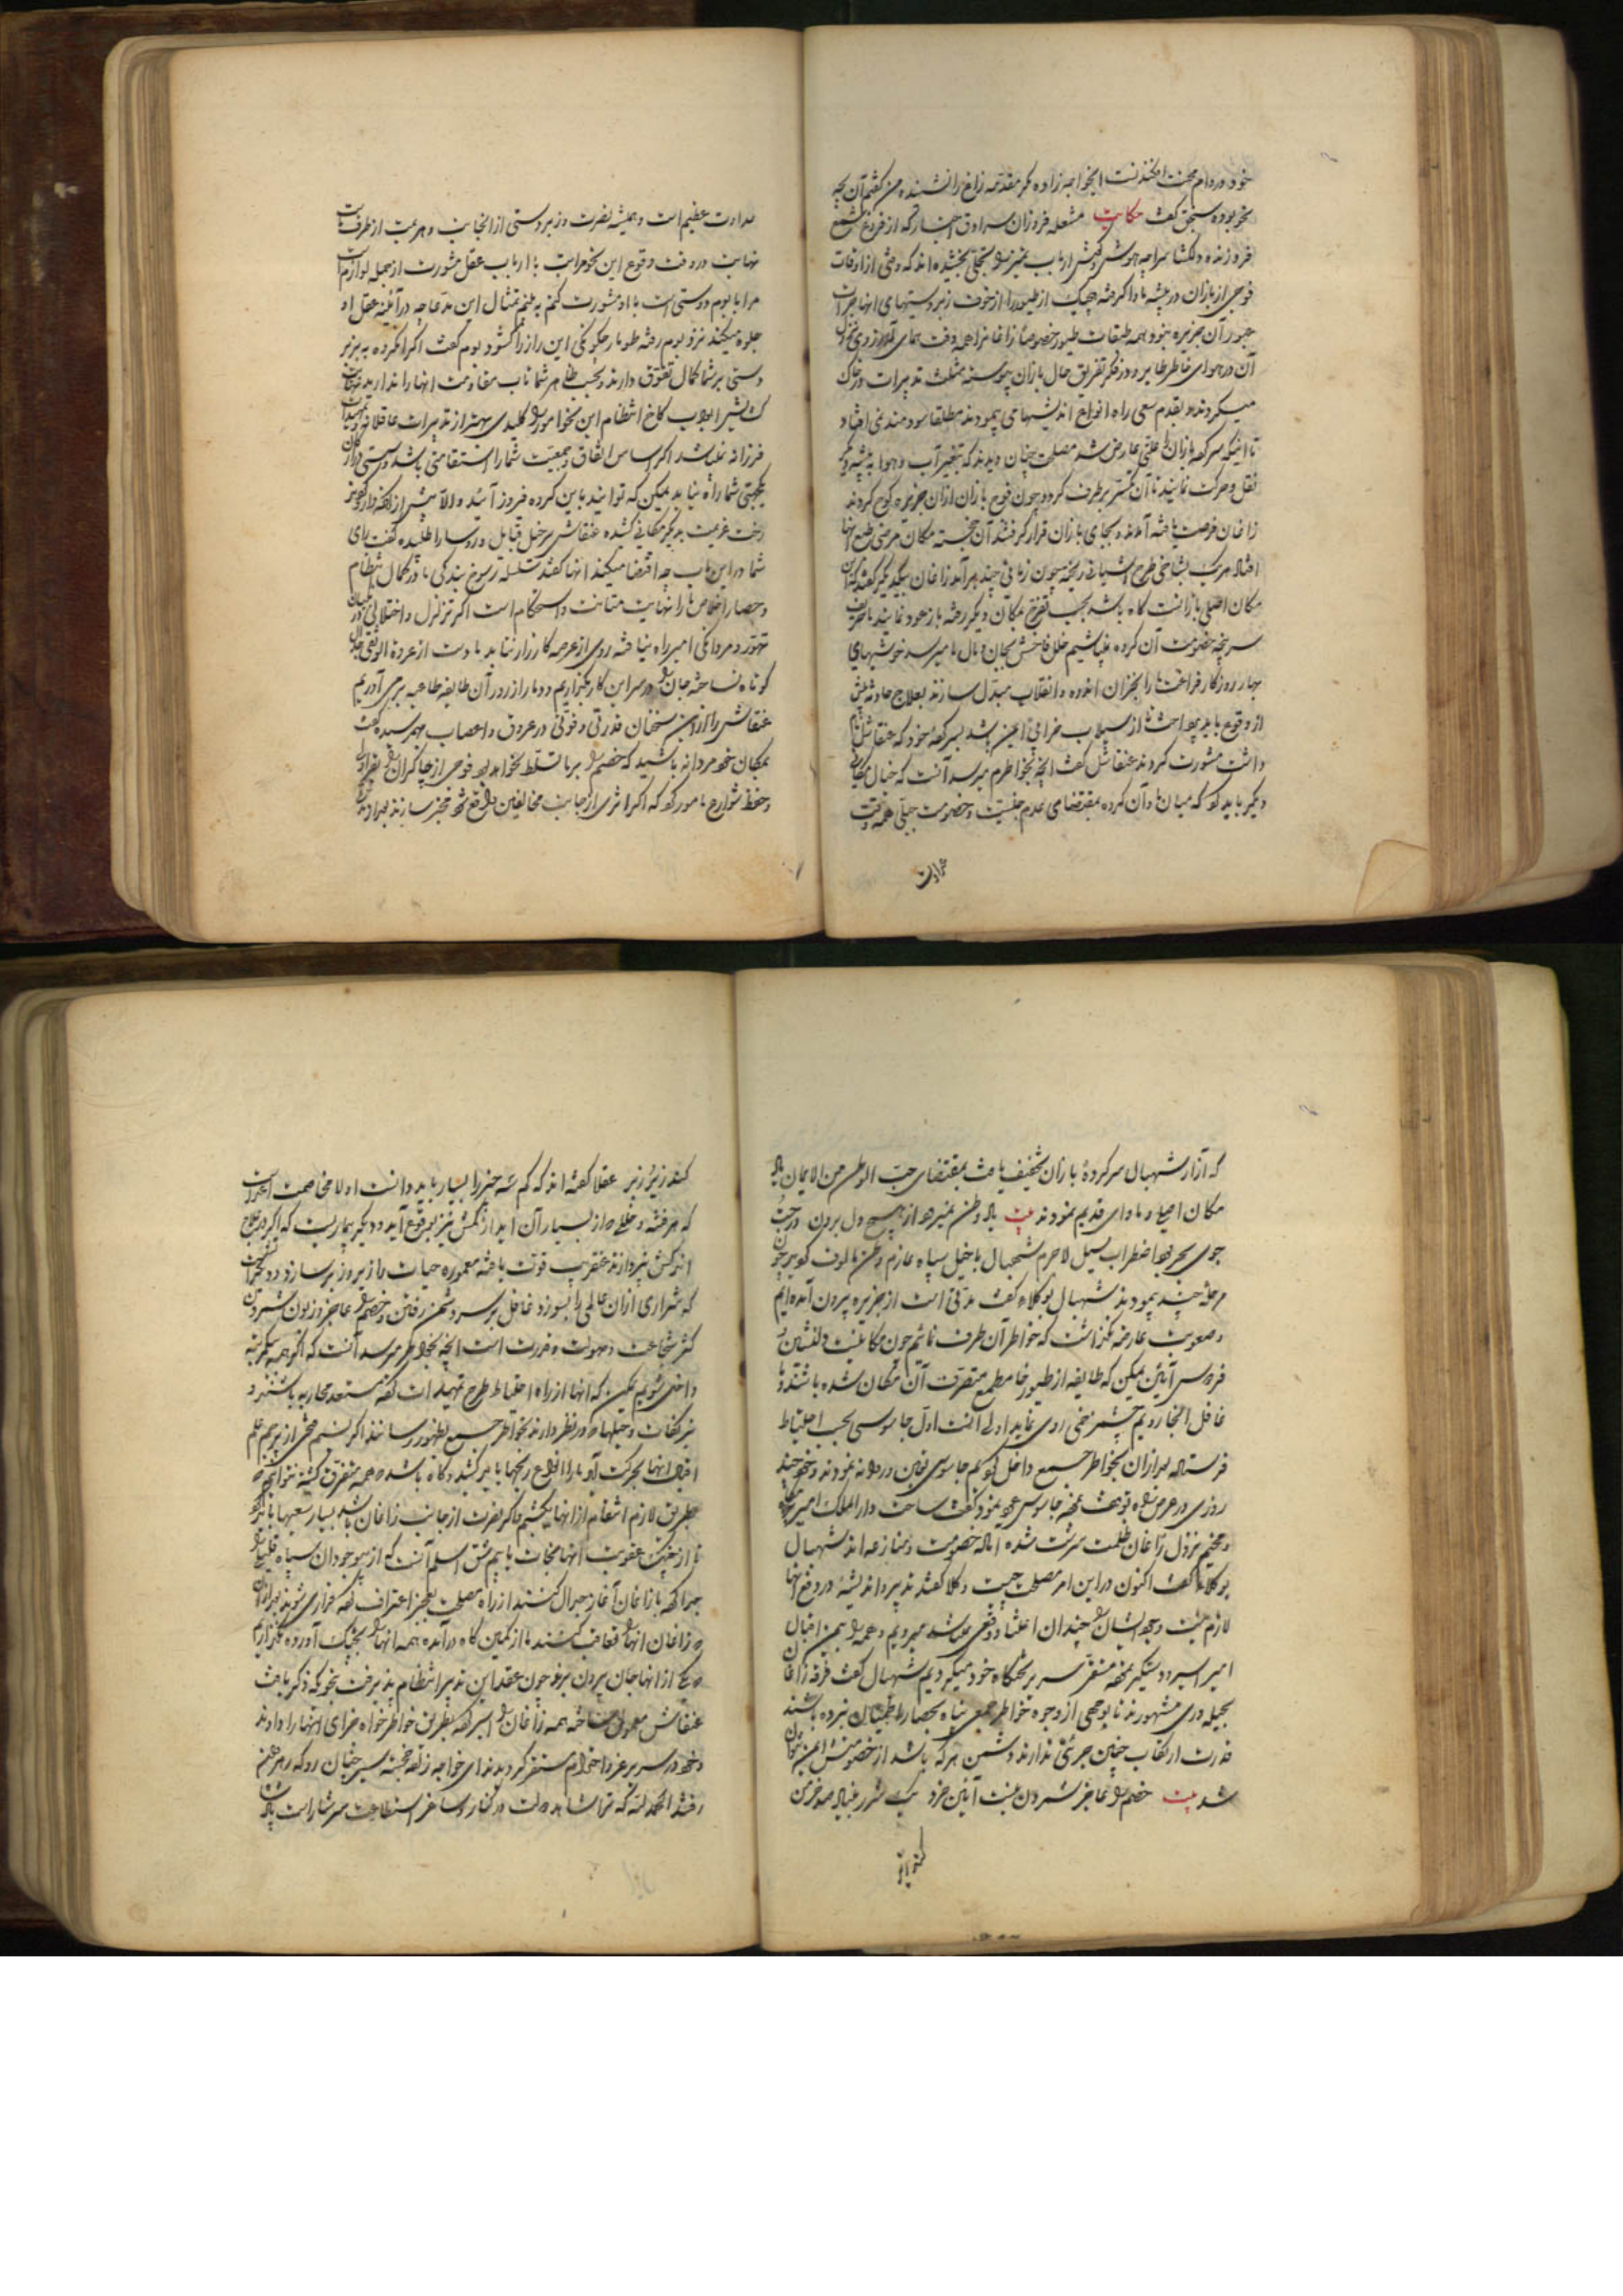 خود در دام محنت افکندنست ایخواجه زاده مگر مقدمه زاغ را نشنیده من گفتم آن چه
نحو بوده سبحق گفت حکایت مشعله فروزان سرادق اخبار که از فروغ شمع
فروزنده دلگشا سراچه هوش و گوش ارباب تمیز را تجلی بخشیده اند که وقتی از اوقات
فوجی از بازان در بیشه ماوا گرفته هیچیک از طیور را از خوف زبردستیهای انها جرات
عبور آن جزیره نبود همه طبقات طیور خصوصا زاغانرا همه وقت همای آرزوی نزول
آن در هوای خاطر طایر و در فکر تفریق حال بازان پیوسته بمثلث تدبیرات در خاک
میکردند و بقدم سعی راه انواع اندیشهای پیمودند مطلقا سودمند نمی افتاد
تا اینکه سرکرده بازان را علتی عارض شد مصلحت چنان دیدند که بتغییر آب و هوا به بیشه دیگر
نقل و حرکت نمایند تا آن تکسر برطرف گردد چون فوج بازان ازان جزیره کوچ کردند
زاغان فرصت یافته آمدند و بجای بازان قرار گرفتند آن خجسته مکان مرضی طبع انها
افتاد هریک بشاخی طرح آشیانی ریخته چون زمانی چند برآمد زاغان بیکدیگر گفتند که این
مکان اصلی بازانست گاه باشد بجهت تفرج بمکان دیگر رفته باز عود نمایند با حریف
سرپنجه خصومت آن گروه نباشیم خلل فاحش بجان و بال ما میرسد خوشیهای
بهار روزگار فراغت ما را بخزان اندوه و انقلاب مبدل سازند بعلاج حادثه پیش
از وقوع باید پرداخت تا از سیلاب خرابی ایمن باشد بسرکرده خود که عنقاش نام
داشت مشورت کردند عنقاش گفت انچه بخواطرم میرسد آنست که خیال مکانی
دیگر باید کرد که میان ما و آن گروه بمقتضای عدم جنسیت و خصومت جبلی همه وقت
عداوت
عداوت عظیم است و همیشه نصرت و زبردستی از انجانب و هزیمت از طرف ماست
نهایت در وقت وقوع این نحو مراتب با ارباب عقل مشورت از جمله لوازم است
مرا با بوم دوستی است با او مشورت کنم به بینم تمثال این مدعا چه در آئینه عقل او
جلوه میکند نزد بوم رفته طومار چگونگی این راز را گشود بوم گفت اگر انگروه به زبر
دستی بر شما کمال تفوق دارند و بحسب ظاهر شما تاب مقاومت انها را ندارید نهایت
گشایش ابواب کاخ انتظام این نحو امور را کلیدی بهتر از تدبیرات عاقلانه و تمهیدات
فرزانه نمیباشد اگر اساس اتفاق و جمعیت شما را استقامتی باشد و سستی در ارکان
یکجهتی شما راه نیابد ممکن که توانید باین گروه فیروز آئید و الا پیش از
رخت عزیمت بدیگر مکانی کشیده عنقاش سرخیل قبایل و روسا را طلبیده گفت رای
شما در این باب چه اقتضا میکند انها گفتند سلسله رسوخ بندگی ما در کمال انتظام
و حصار اخلاص ما را نهایت متانت و استحکام است اگر تزلزل و اختلالی در بنیان
تهور و مردانگی امیر راه نیافته روی از عرصه کارزار نتابد ما دست از عروة الوثقی جدال
کوتاه نساخته جان را در سر این کار بگذاریم و دمار از روزگار آن طایفه طاعیه برمی آوریم
عنقاش را ازین سخنان قدرتی و قوتی در عروق و اعصاب بهم رسیده گفت
بمکان خود مردانه باشید که خصم را بر ما تسلط نخواهد بود فوجی از چاکران را بقراولی
و حفظ شوارع مامور کرد که اگر اثری از جانب مخالفین واقع شود مخبر سازند بعد از مدتی
که آزار شهبال سرکرده بازان تخفیف یافت بمقتضای حب الوطن من الایمان یاد
مکان اصلی و ماوای قدیم نمودند بیت یاد وطن نمیرود از هیچ دل برون در جست
جوی بحر بود اضطراب سیل لاجرم شهبال با خیل سپاه عازم وطن مالوف گردید چون
مرحله چند پیمودند شهبال بوکلاء گفت مدتی است از جزیره بیرون آمده ایم
و صعوبت عارضه نگذاشت که خواطر آن طرف نمائیم چون مکانیست دلنشین و
فردوس آئین ممکن که طایفه از طیور خامطمع متصرف آن مکان شده باشند تا
غافل انجا رویم چشم زخمی روی نماید اولی آنست اول جاسوسی بجهت احتیاط
فرستاده بعد ازان بخواطر جمع داخل گردیم جاسوسی تعیین و روانه نمودند و خود چند
روزی در عرض راه توقف نموده جاسوس عود نمود و گفت ساحت دارالملک امیر مقام
و مخیم نزول زاغان ظلمت سرشت شده اماده خصومت و منازعه اند شهبال
بوکلاء گفت اکنون در این امر مصلحت چیست وکلا گفتند تدبیر و اندیشه در دفع انها
لازم نیست وجود ایشان را چندان اعتنا و وقعی نمیباشد میرویم و همه را بیمن اقبال
امیر اسیر و دستگیر نموده مستقر سریر تختگاه خود میگردیم شهبال گفت فرقه زاغان
بحیله وری مشهورند تا بوجهی از وجوه خواطر جمعی پناه بحصار اطمینان نبرده باشند
قدرت ارتکاب چنین جرئتی ندارند دشمن هر که باشد از خصومتش ایمن نتوان
شد بیت خصم را عاجز شمردن نیست آئین خرد یک شرر بنیاد صد خرمن
کند زیر و زبر
کند زیر و زبر عقلا گفته اند که کم سه چیز را بسیار باید دانست اولا مخاصمت اعداست
که هر فتنه و خلل که از بسیار آن اید از کمش نیز بوقوع آید و دیگر بیماریست که اگر در علاج
اندکش نپردازند عنقریب قوت یافته معموره حیات را زیر و زبر سازد و دیگر آتش است
که شراری ازان عالمی را بسوزد و غافل بر سر دشمن رفتن و خصم را عاجز و زبون شمردن
کثر شجاعت و مهولت و قدرت است انچه بخواطرم میرسد آنست که اگر همه یکمرتبه
داخل شویم ممکن که انها از راه احتیاط طرح تمهیدات کرده مستعد محاربه باشند و
نیرنگات و حیلها که در نظر دارند بخواطر جمع بظهور رسانند اگر نسیم فتحی از پرچم علم
اقبال انها بحرکت آید ما را انواع رنجها باید کشید و گاه باشد که همه متفرق گشته نتوانیم که
بطریق لازم انتقام از انها بکشیم و اگر نصرت از جانب زاغان باشد بسیار سعیها باید کرد
تا از چنگ عقوبت انها نجات یابیم شق اسلم آنست که از بوم جودان سپاه قلیلی را
جدا کرده با زاغان آغاز جدال کنند از راه مصلحت بعجز اعتراف کرده فراری شوند بعد ازان
که زاغان انها را تعاقب کنند ما از کمین گاه درآمده همه انها را بچنگ آورده نگذاریم
که یکی از انها جان بیرون برد چون عقد این تدبیر انتظام پذیرفت بنحوی که ذکر یافت
عنقاش معمول ساخته همه زاغان را اسیر کرده بطریق خواطر خواه سزای انها را دادند
و خود در سریر عز و احترام مستقر گردیدند ای خواجه زاده خجسته سیر خفتان رو که رهزنم
رفتند الحمد لله که ترا شاهد دولت در کنار و ساغر استطاعت سرشار است باید